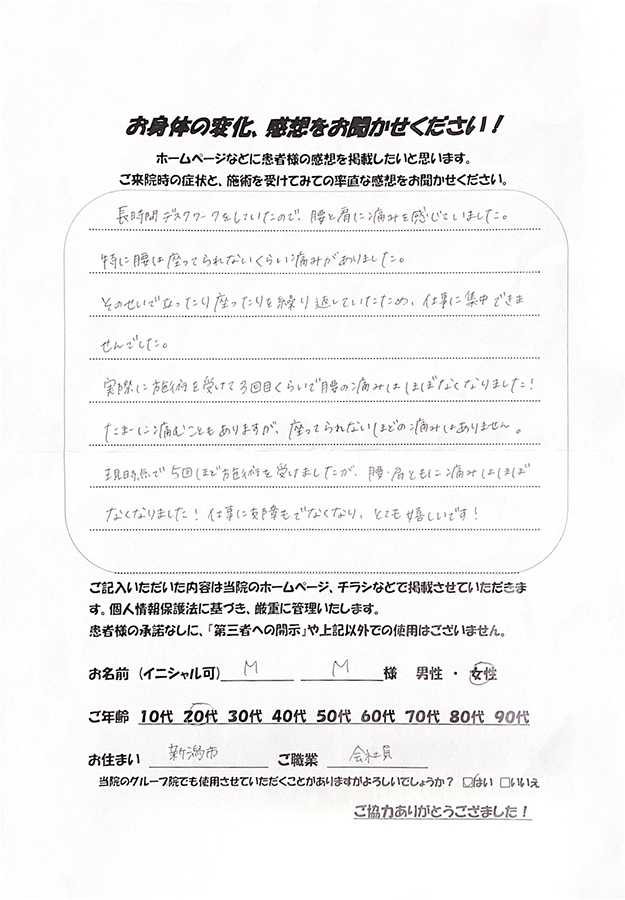 お身体の変化、感想をお聞かせください！
ホームページなどに患者様の感想を掲載したいと思います。
ご来院時の症状と、施術を受けてみての率直な感想をお聞かせください。
長時間デスクワークをしていたので、腰と肩に痛みを感じていました。
特に腰は座ってられないくらい痛みがありました。
そのせいで立ったり座ったりを繰り返していたため、仕事に集中できま
せんでした。
実際に施術を受けて3回目くらいで腰の痛みはほぼなくなりました！
たまーに痛むこともありますが、座ってられないほどの痛みはありません。
現時点で5回ほど施術を受けましたが、腰・肩ともに痛みはほぼ
なくなりました！仕事に支障もでなくなり、とても嬉しいです！
ご記入いただいた内容は当院のホームページ、チラシなどで掲載させていただきま
す。個人情報保護法に基づき、厳重に管理いたします。
患者様の承諾なしに、「第三者への開示」や上記以外での使用はございません。
お名前（イニシャル可） M M 様 男性 ・ 女性
ご年齢 10代 20代 30代 40代 50代 60代 70代 80代 90代
お住まい 新潟市 ご職業 会社員
当院のグループ院でも使用させていただくことがありますがよろしいでしょうか？ ☑はい □いいえ
ご協力ありがとうござました！